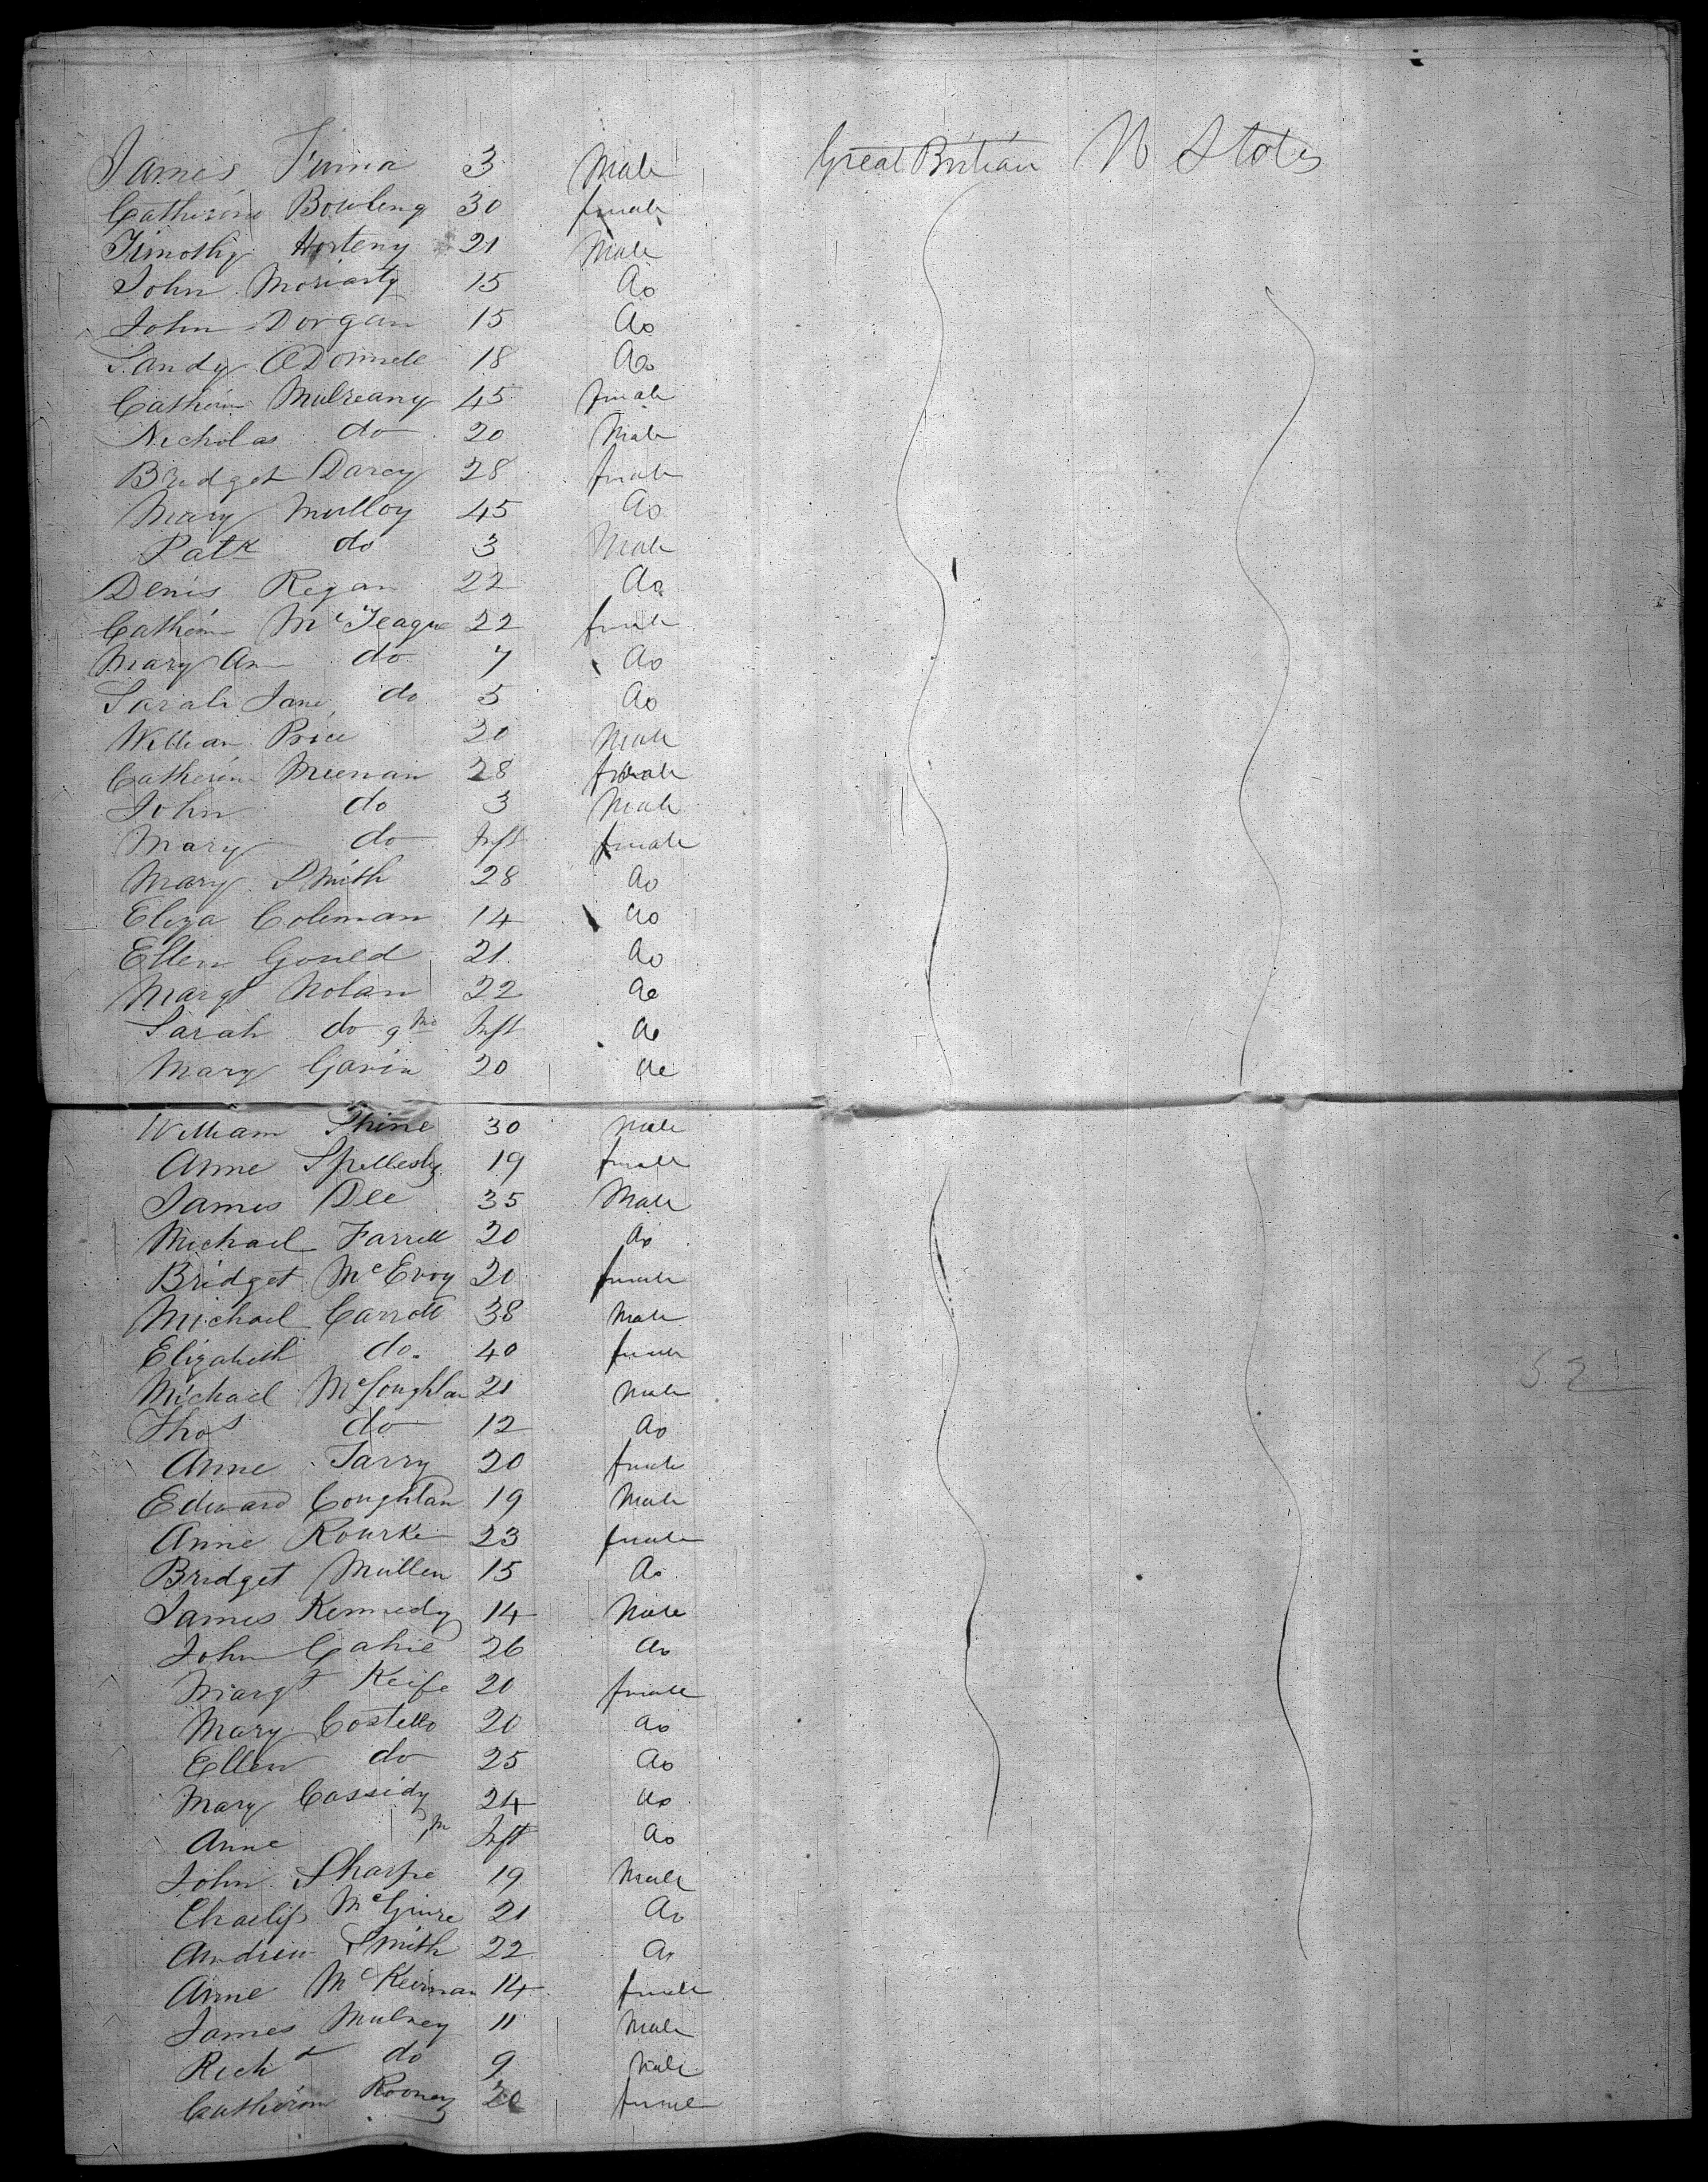 James 3 Male Great Britian U States
Catherine Bowling 30 female
Timothy 21 Male
John Moriarty 15 do
John Dorgan 15 do
Sandy ODonnell 18 do
Catherine Mulreany 45 female
Nicholas do 20 Male
Bridget Darcy 28 female
Mary Mulloy 45 do
Patk do 3 Male
Denis Regan 22 do
Catherine McTeague 22 female
Mary An do 7 do
Sarah Jane do 5 do
William Price 20 Male
Catherine Meenan 28 female
John do 3 Male
Mary do Inft female
Mary Smith 28 do
Eliza Coleman 14 do
Ellen Gould 21 do
Margt Nolan 22 do
Sarah do 9 Mo Inft do
Mary Gavin 20 do
William Shine 30 Male
Anne 19 female
James Dee 35 Male
Michael Farrell 20 do
Bridget McEvoy 20 female
Michael Carroll 38 Male
Elizabeth do. 40 female
Michael McLoughlan 21 Male
Thos do 12 do
Anne 20 female
Edward Coughlan 19 Male
Anne Rourke 23 female
Bridget Mullen 15 do
James Kennedy 14 Male
John 26 do
Margt Keife 20 female
Mary Costello 20 do
Ellen do 25 do
Mary Cassidy 24 do
Anne Inft do
John Sharpe 19 Male
McGuire 21 do
Andrew Smith 22 do
Anne McKeirnan 14 female
James Mulrey 11 Male
Richd do 9 Male
Catherine Rooney 20 female
521